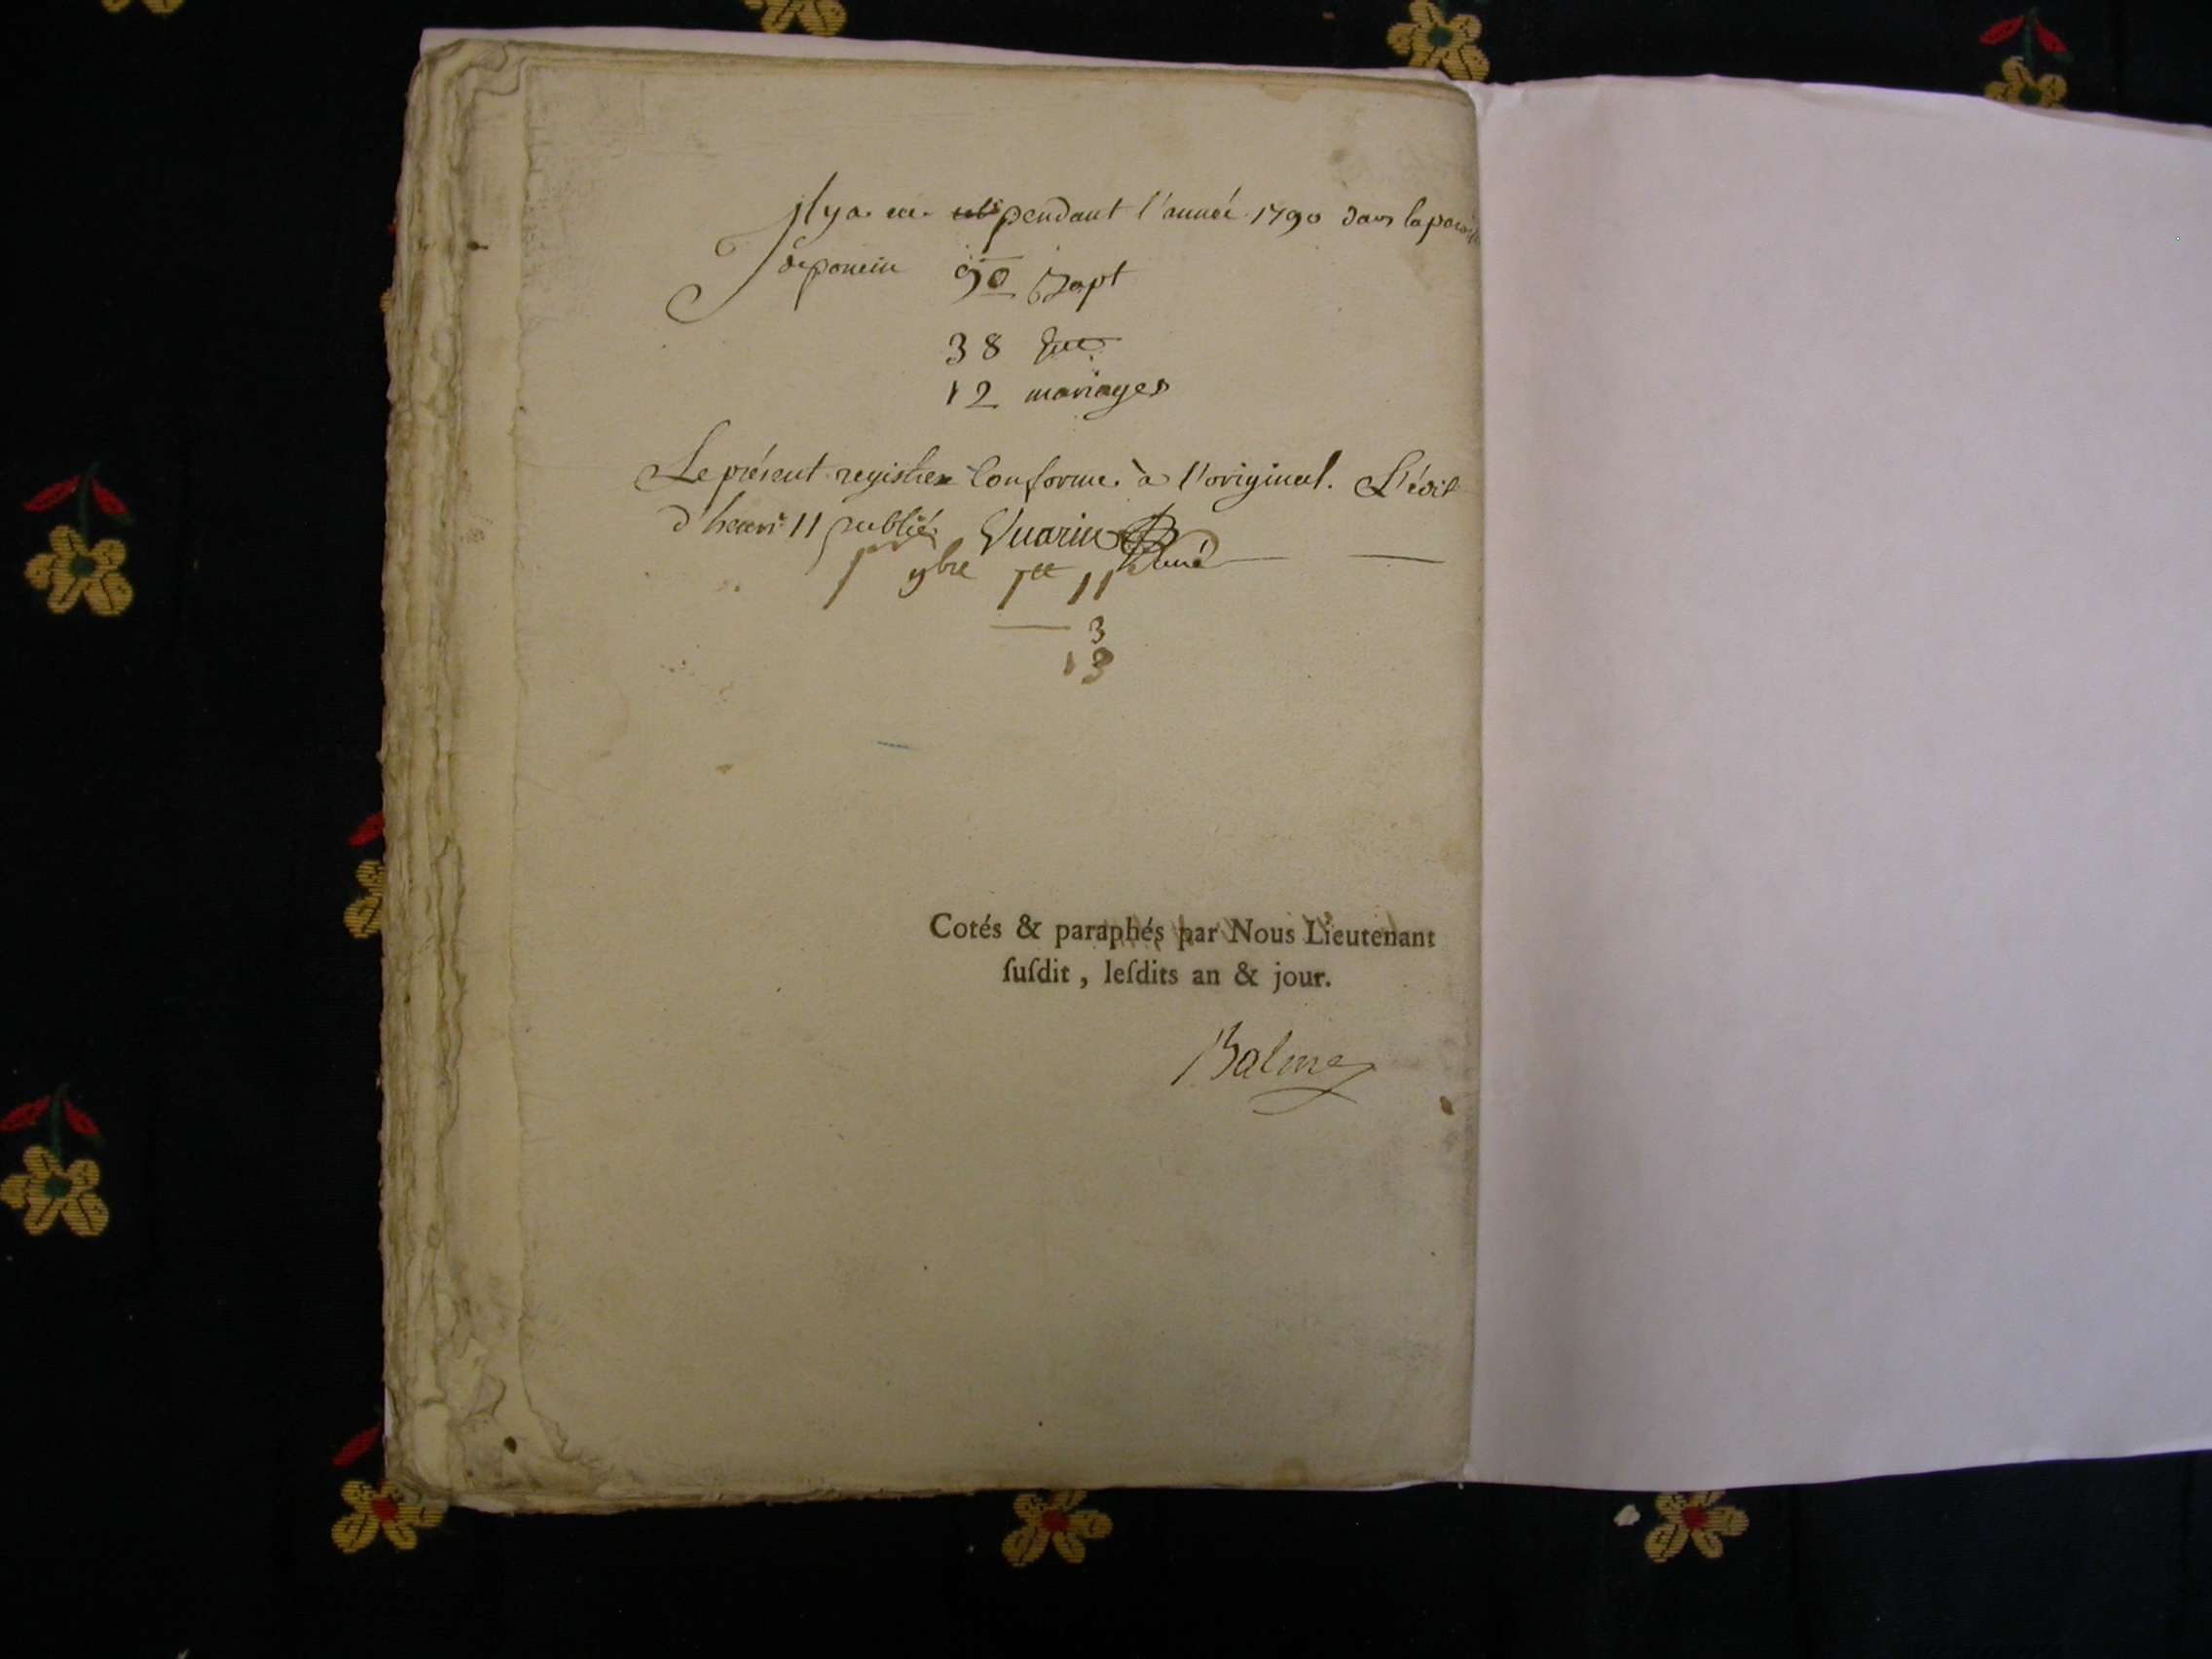 il y a eu pendant l'année 1790 dans la paroisse
de poncin 90 Bapt
38 
12 mariages
Le présent registre Conforme à l'original. L'édit
d'henri 11 publié. Quarin
Curé
9bre 11
3
13
Cotés & paraphés par Nous Lieutenant
ſuſdit, leſdits an & jour.
Balme